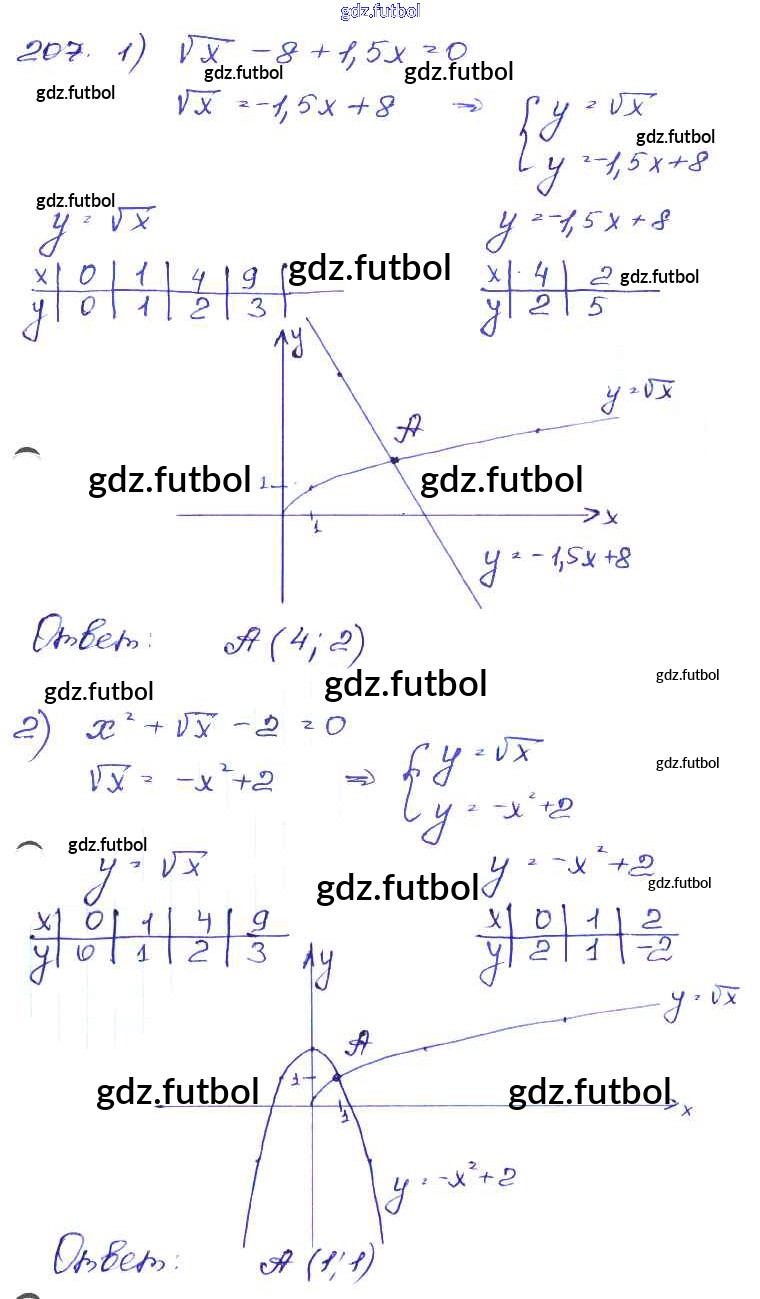 gdz.futbol
207. 1) √x - 8 + 1,5x = 0
gdz.futbol gdz.futbol gdz.futbol
√x = -1,5x + 8 ⇒ { y = √x
gdz.futbol
y = -1,5x + 8
gdz.futbol
y = √x y = -1,5x + 8
x | 0 | 1 | 4 | 9 | gdz.futbol x | 4 | 2 gdz.futbol
y | 0 | 1 | 2 | 3 | y | 2 | 5
y
y = √x
A
gdz.futbol 1 gdz.futbol
1 x
y = -1,5x + 8
Ответ: A (4; 2)
gdz.futbol gdz.futbol gdz.futbol
2) x² + √x - 2 = 0
√x = -x² + 2 ⇒ { y = √x
gdz.futbol
y = -x² + 2
gdz.futbol
y = √x y = -x² + 2
gdz.futbol gdz.futbol
x | 0 | 1 | 4 | 9 x | 0 | 1 | 2
y | 0 | 1 | 2 | 3 y | 2 | 1 | -2
y
y = √x
A
gdz.futbol 1 gdz.futbol
1 x
y = -x² + 2
Ответ: A (1; 1)